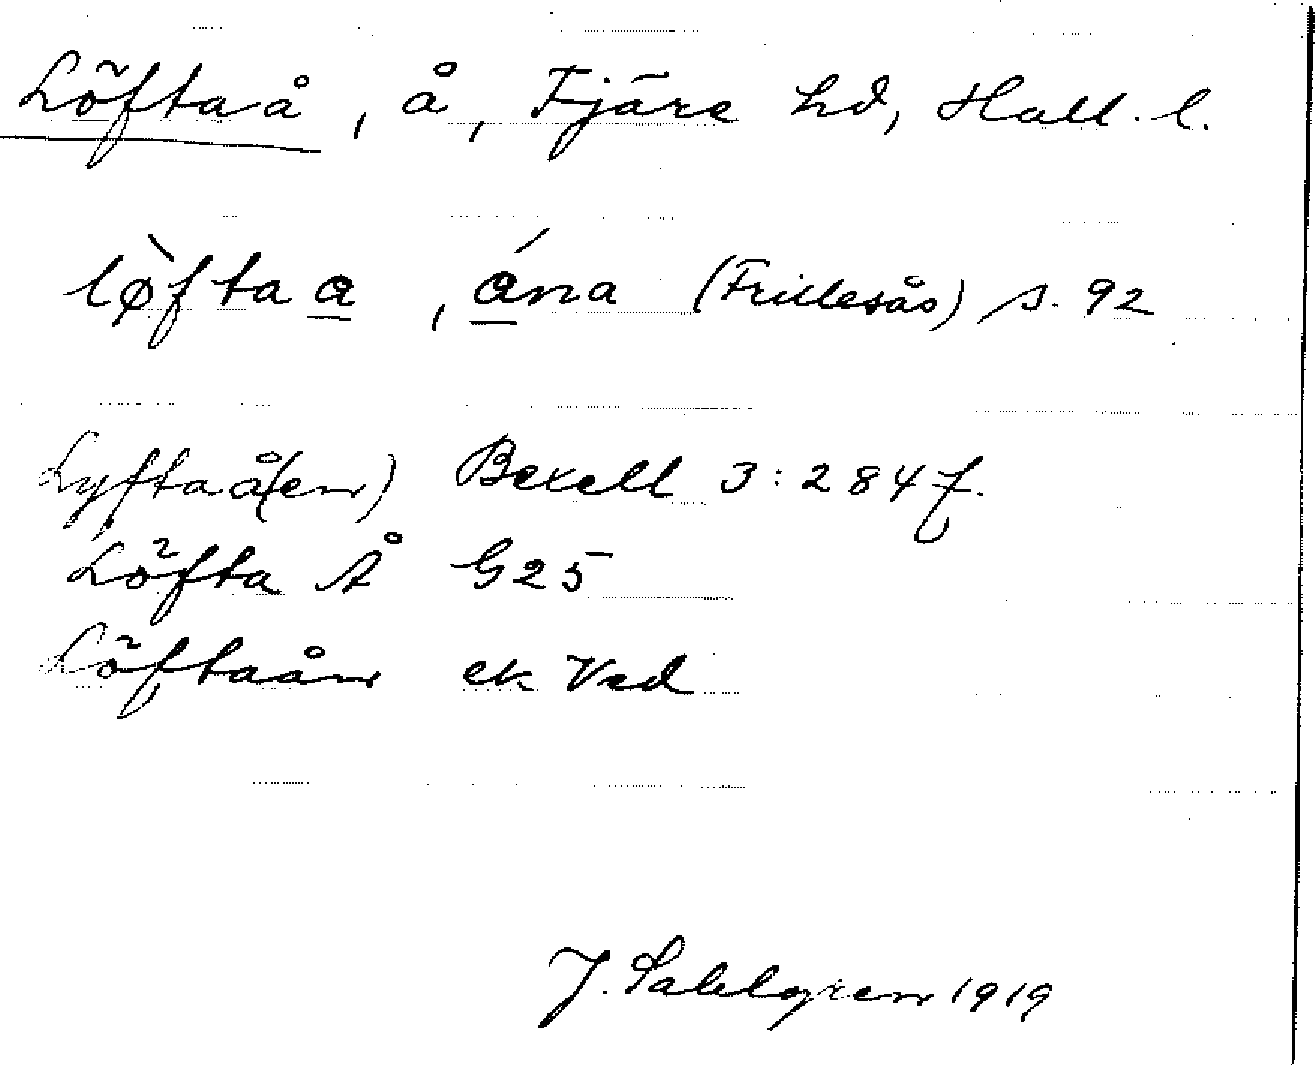 Löftaå, å, Fjäre hd, Hall. l.
lø̀fta a, ána (Frillesås) s. 92
Lyftaå(en) Bexell 3:284 f.
Löfta Å G25
Löftaån ek Vad
J. Sahlgren 1919